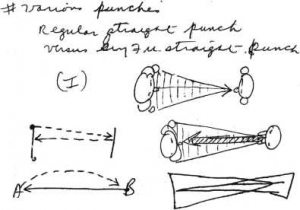 # Various punches
Regular straight punch
versus Gung Fu straight punch
(I)
A B